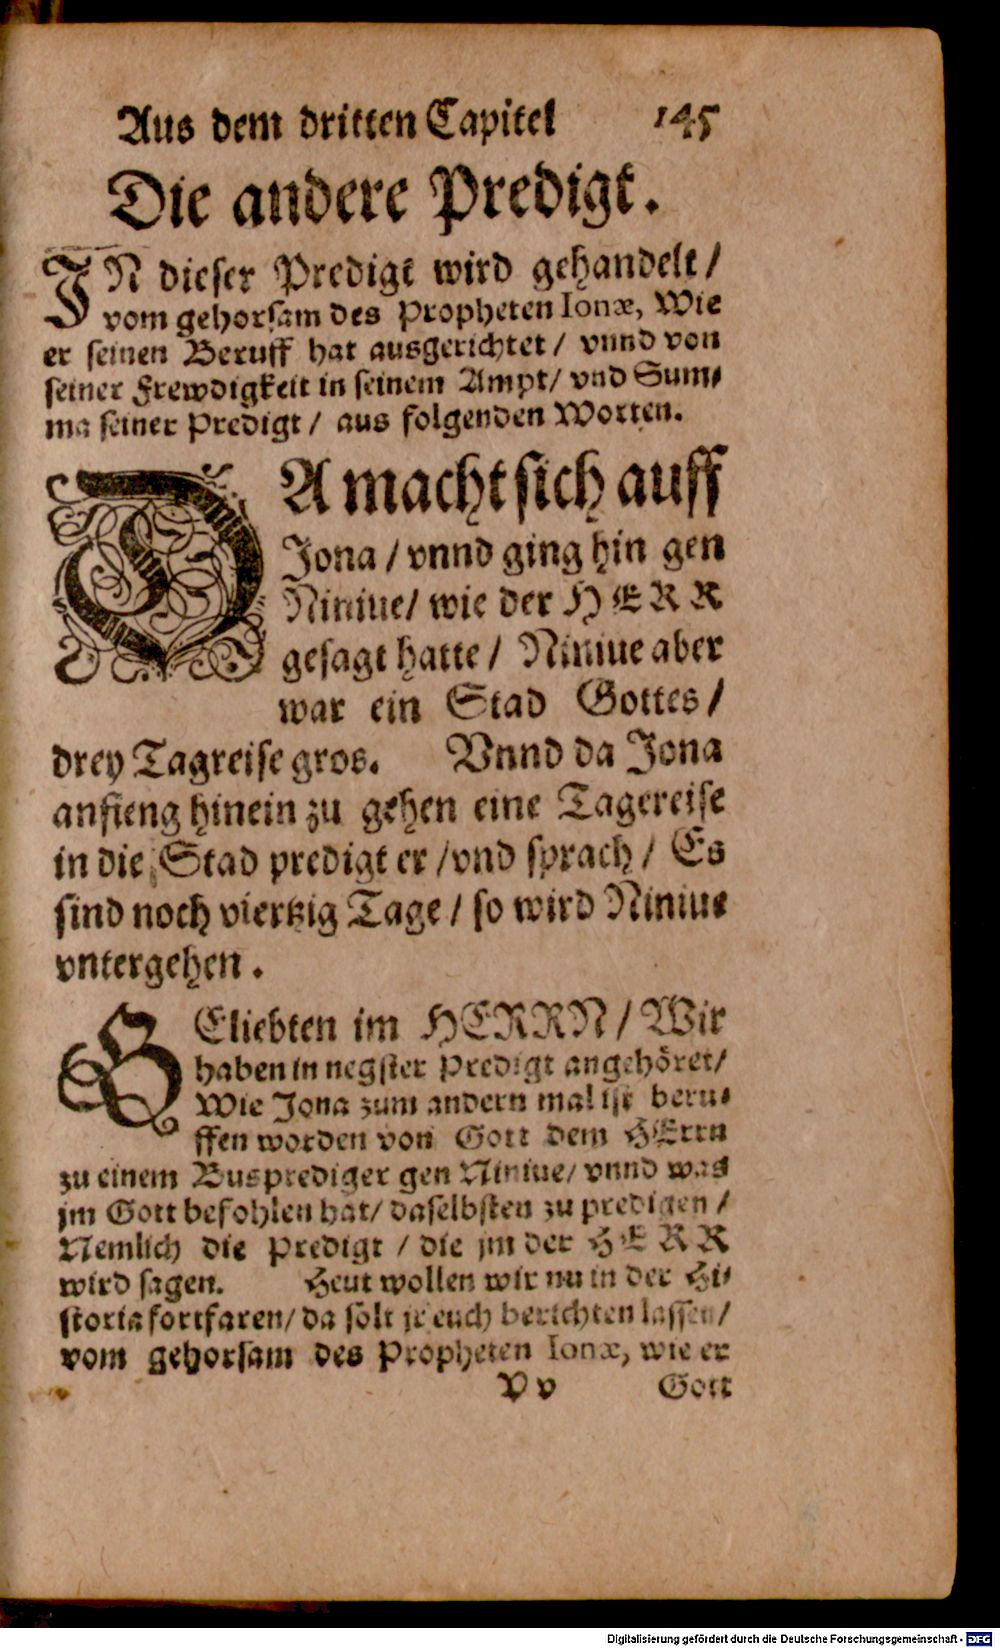 Aus dem dritten Capitel 145
Die andere Predigt.
IN dieser Predigt wird gehandelt /
vom gehorsam des Propheten Ionæ, Wie
er seinen Beruff hat ausgerichtet / vnnd von
seiner Frewdigkeit in seinem Ampt / vnd Sum⸗
ma seiner Predigt / aus folgenden Worten.
DA macht sich auff
Jona / vnnd ging hin gen
Niniue / wie der HERR
gesagt hatte / Niniue aber
war ein Stad Gottes /
drey Tagreise gros. Vnnd da Jona
anfieng hinein zu gehen eine Tagereise
in die Stad predigt er / vnd sprach / Es
sind noch viertzig Tage / so wird Niniue
vntergehen.
GEliebten im HERRN / Wir
haben in negster Predigt angehöret /
Wie Jona zum andern mal ist beru⸗
ffen worden von Gott dem HErrn
zu einem Busprediger gen Niniue / vnnd was
jm Gott befohlen hat / daselbsten zu predigen /
Nemlich die Predigt / die jm der HERR
wird sagen. Heut wollen wir nu in der Hi⸗
storia fortfaren / da solt jr euch berichten lassen /
vom gehorsam des Propheten Ionæ, wie er
V v Gott
Digitalisierung gefördert durch die Deutsche Forschungsgemeinschaft - DFG